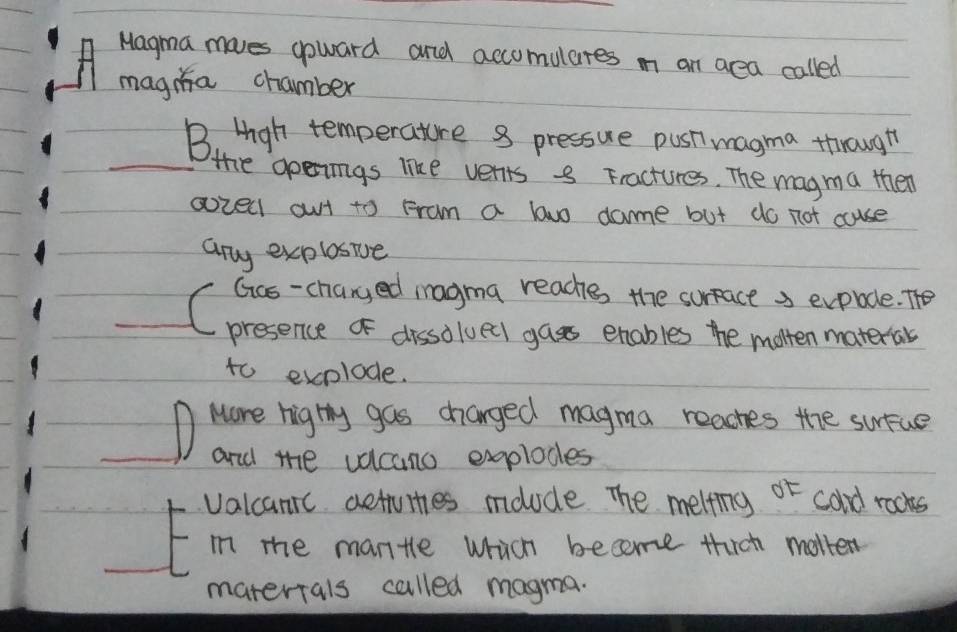 A Magma moves upward and accumulates in an area called
magma chamber
B High temperature & pressure push magma through
the openings like vents & Fractures. The magma then
oozed out to Fram a lava dome but do not cause
any explosive
C Gas-charged magma reaches the surface & explode. The
presence of dissolved gases enables the molten materials
to explode.
D More highly gas charged magma reaches the surface
and the volcano explodes
E Volcanic activities include The melting of cold rocks
in the mantle which become thick molten
materials called magma.